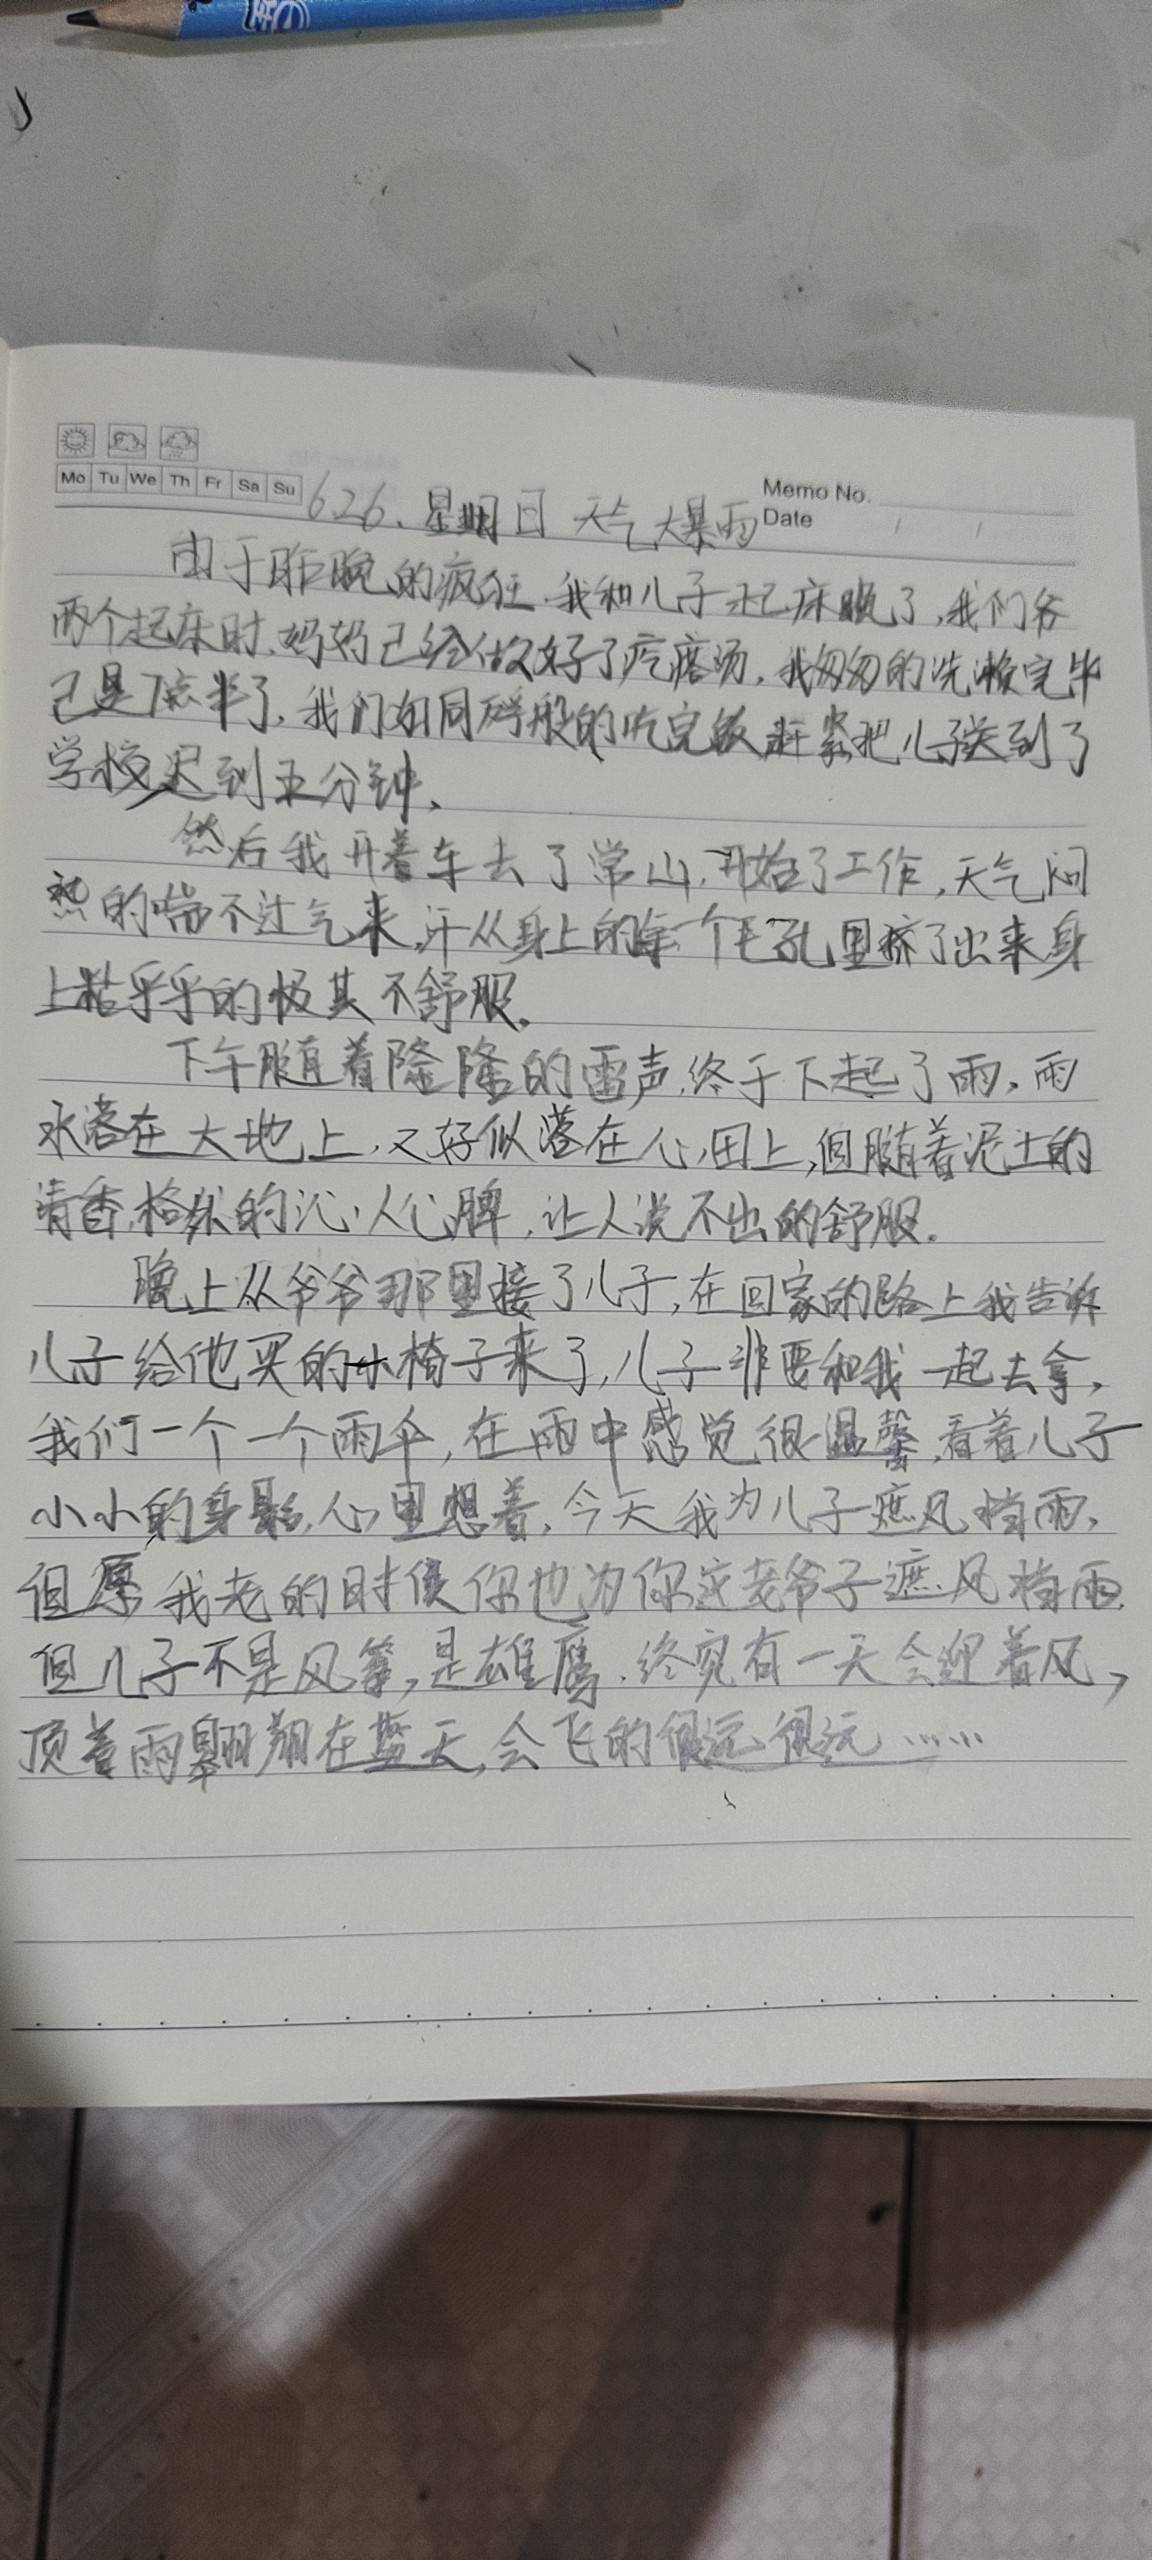 Mo Tu We Th Fr Sa Su
Memo No.
Date / /
626、星期日 天气大暴雨
由于昨晚的疯狂、我和儿子起床晚了,我们爷
两个起床时,妈妈已经做好了疙瘩汤,我匆匆的洗漱完毕
已是7点半了,我们如同般的吃完饭赶紧把儿子送到了
学校迟到五分钟、
然后我开着车去了常山,开始了工作,天气闷
热的喘不过气来,汗从身上的每一个毛孔里挤了出来身
上粘乎乎的极其不舒服。
下午随着隆隆的雷声,终于下起了雨,雨
水落在大地上,又好似落在心田上,但随着泥土的
清香,格外的沁人心脾,让人说不出的舒服。
晚上从爷爷那里接了儿子,在回家的路上我告诉
儿子给他买的小椅子来了,儿子非要和我一起去拿,
我们一个一个雨伞,在雨中感觉很温馨,看着儿子
小小的身影,心里想着,今天我为儿子遮风档雨,
但愿我老的时候你也为你这老爷子遮风档雨,
但儿子不是风筝,是雄鹰,终究有一天会迎着风,
顶着雨翱翔在蓝天,会飞的很远很远……